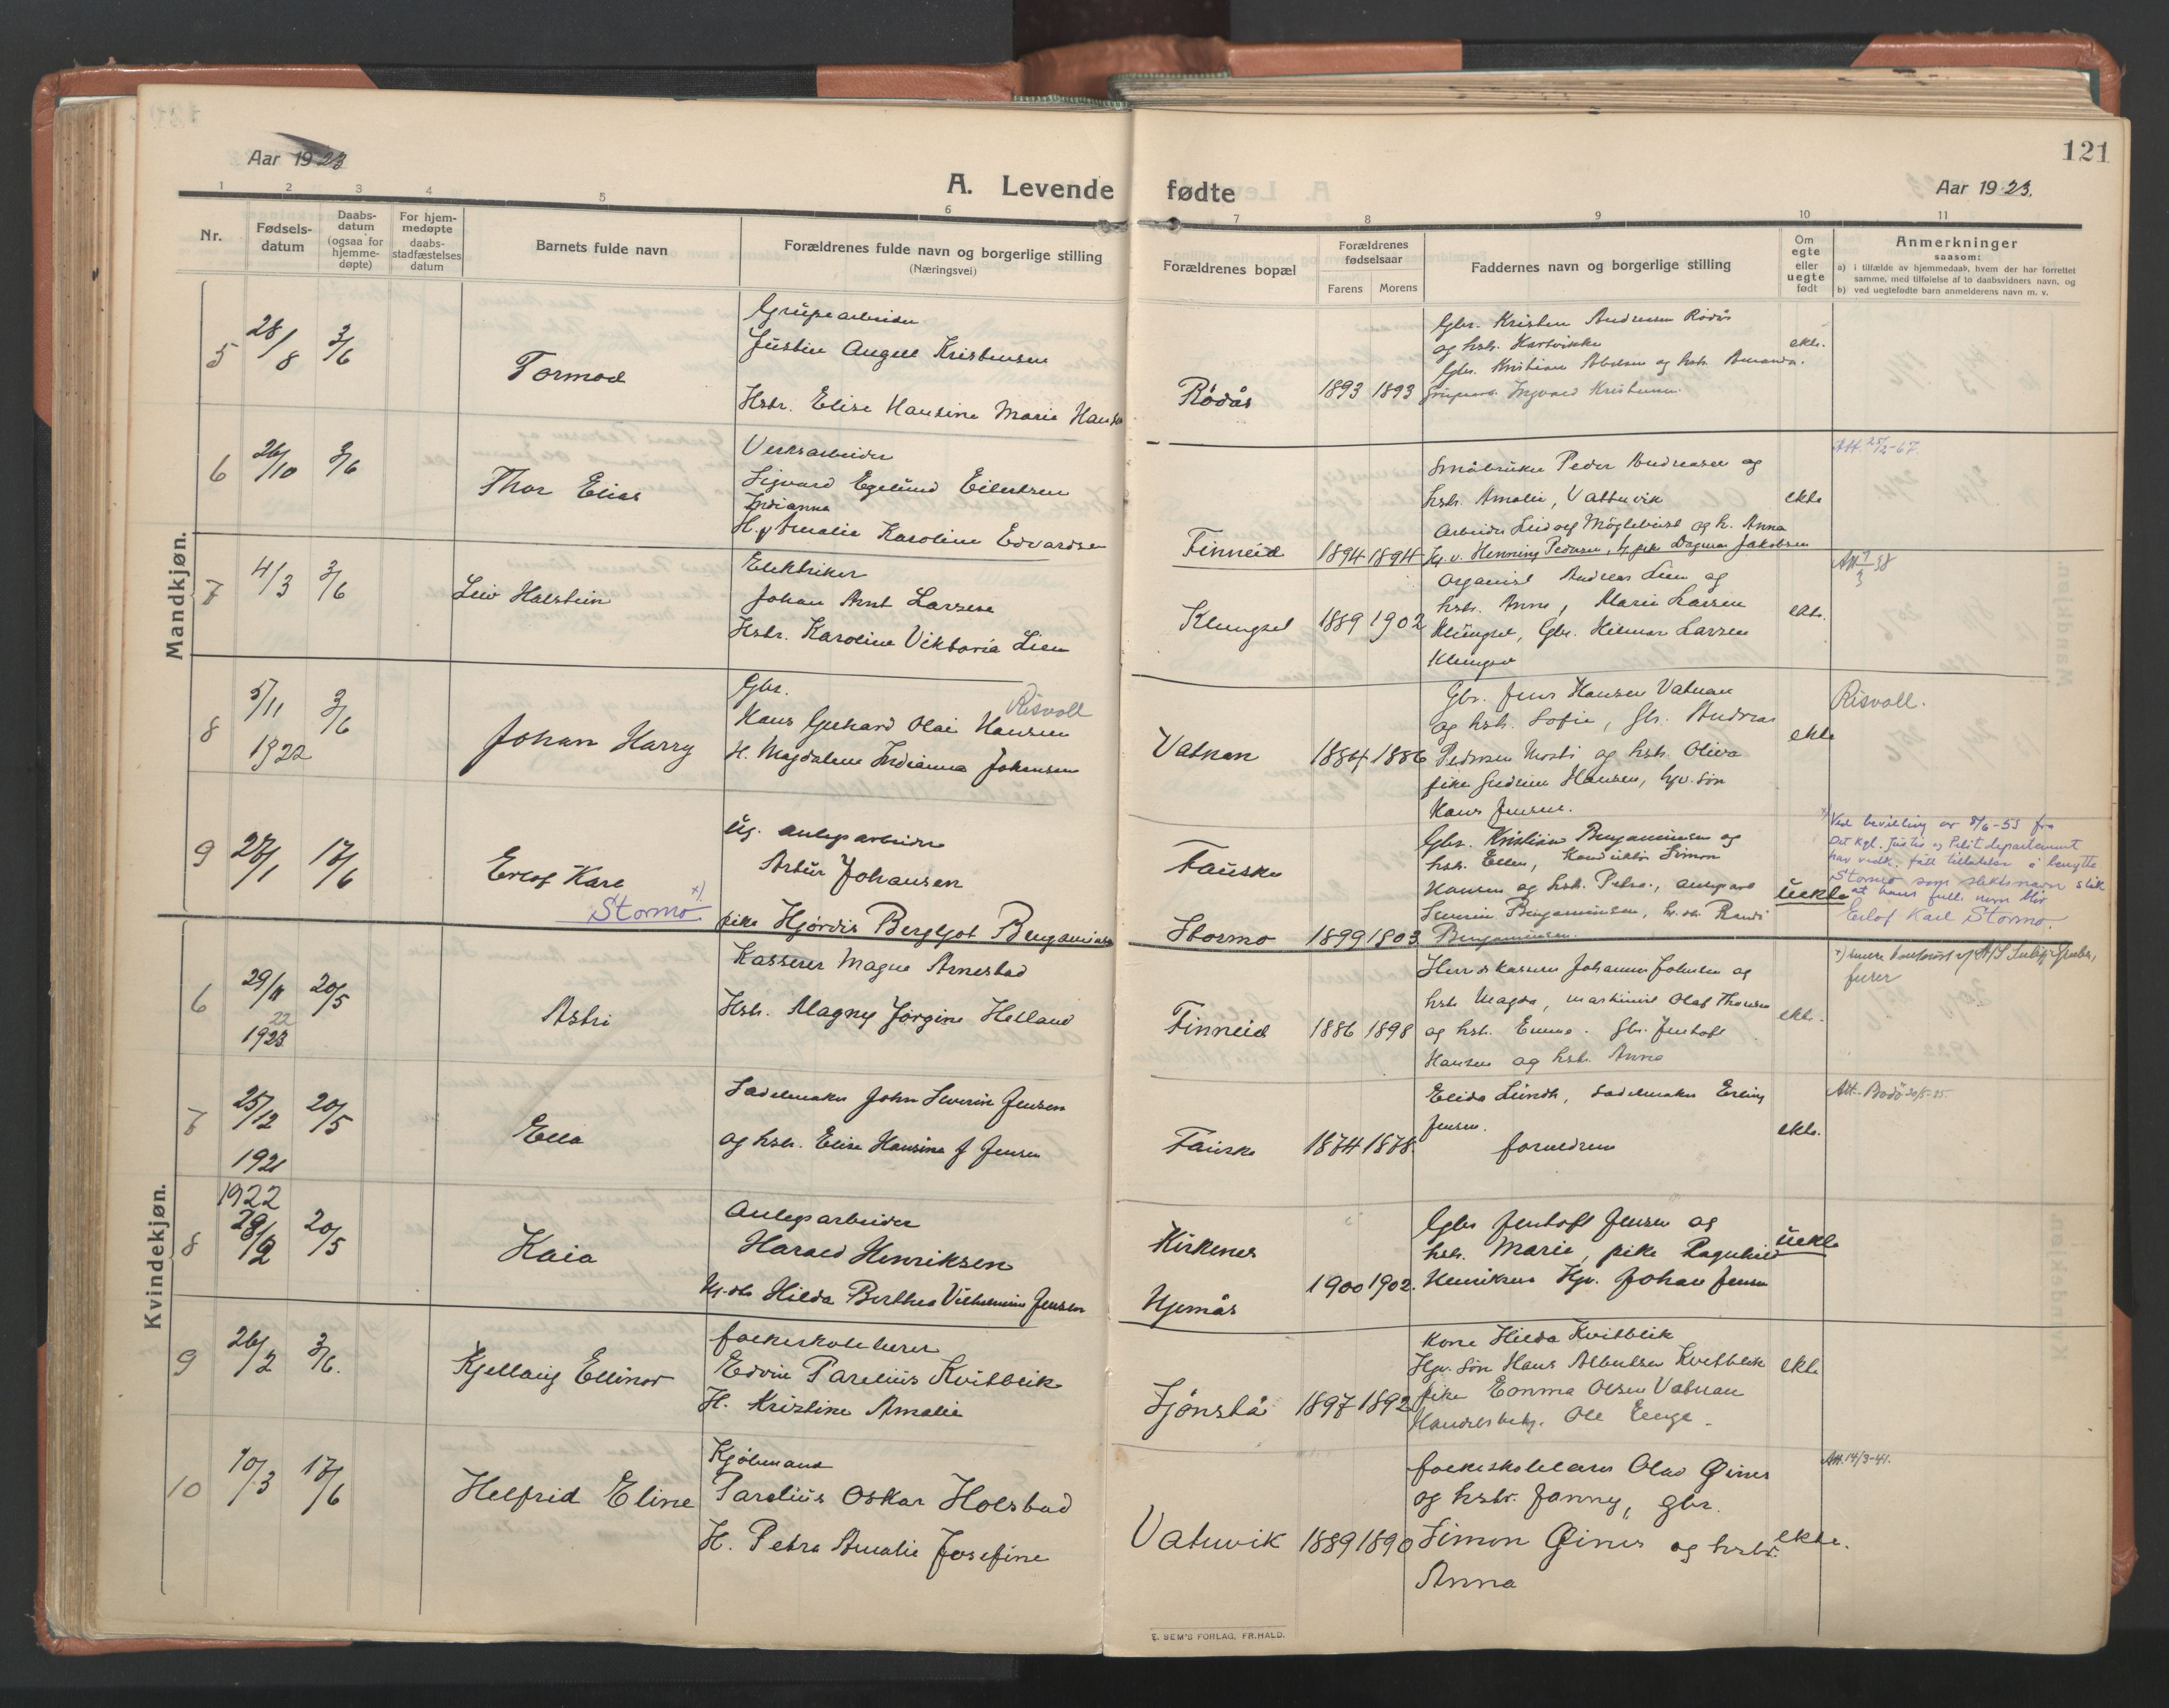 121
Aar 1923
Aar 1923.
A. Levende fødte
1 2 3 4 5 6 7 8 9 10 11
Nr.
Fødsels-
datum
Daabs-
datum
(ogsaa for
hjemme-
døpte)
For hjem-
medøpte
daabs-
stadfæstelses
datum
Barnets fulde navn
Forældrenes fulde navn og borgerlige stilling
(Næringsvei)
Forældrenes bopæl
Forældrenes
fødselsaar
Farens Morens
Faddernes navn og borgerlige stilling
Om
egte
eller
uegte
født
Anmerkninger
saasom:
a) i tilfælde av hjemmedaab, hvem der har forrettet
samme, med tilføielse af to daabsvidners navn, og
b) ved uegtefødte barn anmelderens navn m. v.
Mandkjøn.
5 28/8 3/6
Tormod
Grubearbeider
Justin August Kristensen
Hstr. Elise Hansine Marie Hansen
Rödås
1893 1893
Gbr. Kristen Andreasen Rödås
og hstr. Hartvikke
Gbr. Kristian Abelsen og hstr. Amanda.
Ingvard Kristensen.
ekte.
6 26/10 3/6
Thor Elias
Verksarbeider
Sigvard Egelund Eilertsen
Indianna
H. Amalie Karoline Edvardsen
Finneid
1894 1894
Småbruker Peder Andreasen og
hstr. Amalie, Vattnvik
Arbeider Ludvig og h. Anna
Henning Pedersen, pike Dagmar Jakobsen
ekte
Att. 25/2-67.
7 4/3 3/6
Leiv Halstein
Elektriker
Johan Arnt Larsen
Hstr. Karoline Viktoria Lien
Klungset
1889 1902
Organist Andreas Lien og
hstr. Anna, Marie Larsen
Klungset, Gbr. Hilmar Larsen
Klungset
ekte.
Att 7/3 38
8 5/11 3/6
1922
Johan Harry
Gbr.
Risvoll
Hans Gerhard Olai Hansen
H. Magdalene Indianna Johansen
Vatnan
1884 1886
Gbr. Jens Hansen Vatnan
og hstr. Sofie, Gbr. Andreas
Pedersen Mosti og hstr. Oliva
pike Gudrun Hansen, gbr. søn
Hans Jensen.
ekte
Risvoll.
9 27/1 17/6
Erlof Kare
Stormo x)
Ug. anlegsarbeider
Artur Johansen
pike Hjördis Bergljot Benjaminsen
Fauske
Stormo
1899 1803
Gbr. Kristian Benjaminsen og
hstr. Ellen, Konduktör Simon
Hansen og hstr. Petra, anlegsarb
Benjaminsen, Randi
Benjaminsen.
uekte
x) Ved bevilling av 8/6-53 fra
Det Kgl. Justis og Politidepartement
har vedk. fått tillatelse å benytte
Stormo som slektsnavn slik
at hans fulle navn blir
Erlof Karl Stormo.
Kvindekjøn.
6 29/11 20/5
22
1923
Astri
Kasserer Magne Arnestad
Hstr. Magny Jörgine Helland
Finneid
1886 1898
Herredskasserer Johannes Johnsen og
hstr. Magda, maskinist Olaf Thorsen
og hstr. Emma. Gbr. Jentoft
Hansen og hstr. Anna
ekte.
7 25/12 20/5
1921
Ella
Sadelmaker John Severin Jensen
og hstr. Elise Hansine J Jensen
Fauske
1874 1878.
Elida Lundh, Sadelmaker Erling
Jensen.
foreldrene
ekte.
Att. Bodö 20/5-25.
1922
8 28/9 20/5
Kaia
Anlegsarbeider
Harald Henriksen
Hilda Berthea Vilhelmine Jensen
Kirkenes
Hjemås
1900 1902.
Gbr Jentoft Jensen og
hstr. Marie, pike Ragnhild
Henriksen Johan Jensen
uekte
9 26/2 3/6.
Kjellaug Ellinor
folkeskolelærer
Edvin Parelius Kvitblik
H. Kristine Amalie
Sjönstå
1897 1892
Kone Hilda Kvitblik
Gbr. Søn Hans Albertsen Kvitblik
pike Emma Olsen Vatnan
Handelsbetj. Ole Enge.
ekte
10 10/3 17/6
Helfrid Eline
Kjöbmand
Parelius Oskar Holstad
H. Petra Amalie Josefine
Vatnvik
1889 1890
folkeskolelærer Olav Øines
og hstr. Fanny, gbr.
Simon Øines og hstr.
Anna
ekte.
Att. 14/3-41.
E. SEM'S FORLAG, FR.HALD.